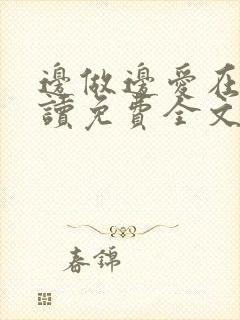 邊做邊愛在
讀免費全文
春錦